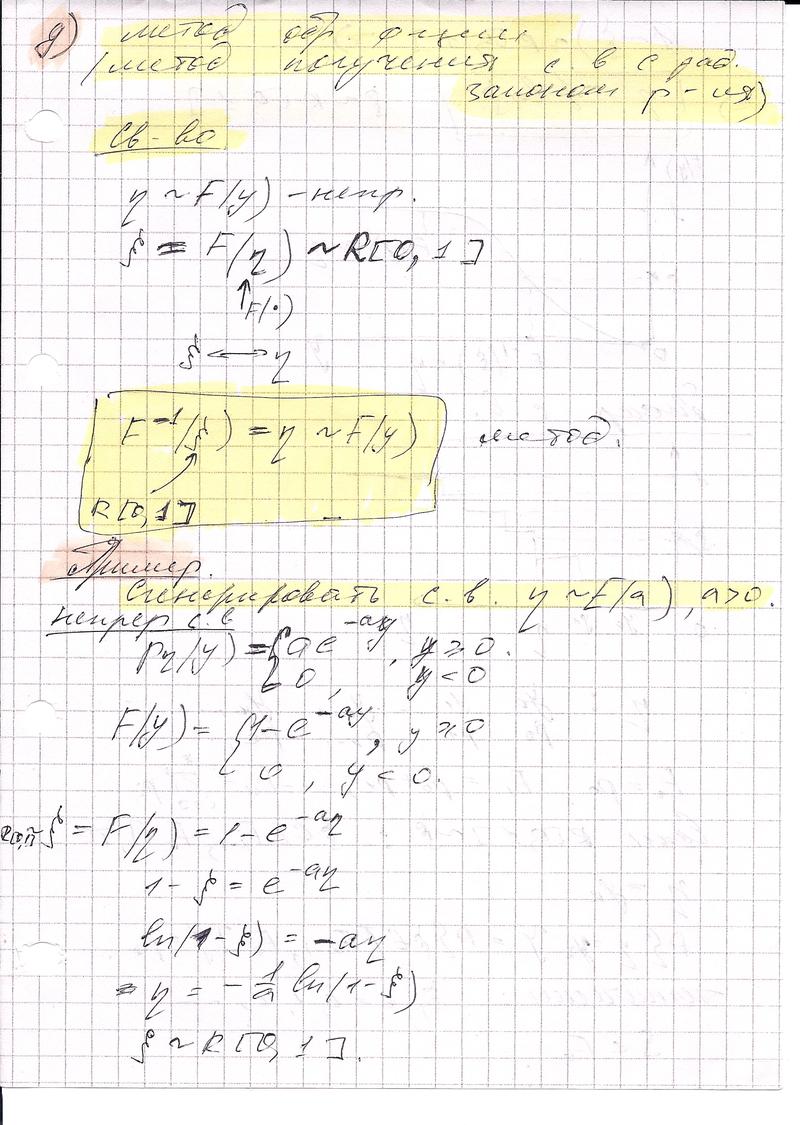 д) метод обр. ф-ции
(метод получения с.в с зад.
законом р-ия)
Св-во
η ~ F(y) - непр.
ξ = F(η) ~ R[0, 1]
↑F(·)
ξ ↔ η
F⁻¹(ξ) = η ~ F(y) метод.
R[0,1]
Пример.
Сгенерировать с.в. η ~ E(a), a>0.
непрер с.в
pη(y) = { ae^{-ay}, y ≥ 0.
0, y < 0
F(y) = { 1-e^{-ay}, y ≥ 0
0, y < 0.
R[0,1] ~ ξ = F(η) = 1-e^{-aη}
1-ξ = e^{-aη}
ln(1-ξ) = -aη
η = -1/a ln(1-ξ)
ξ ~ R[0, 1].